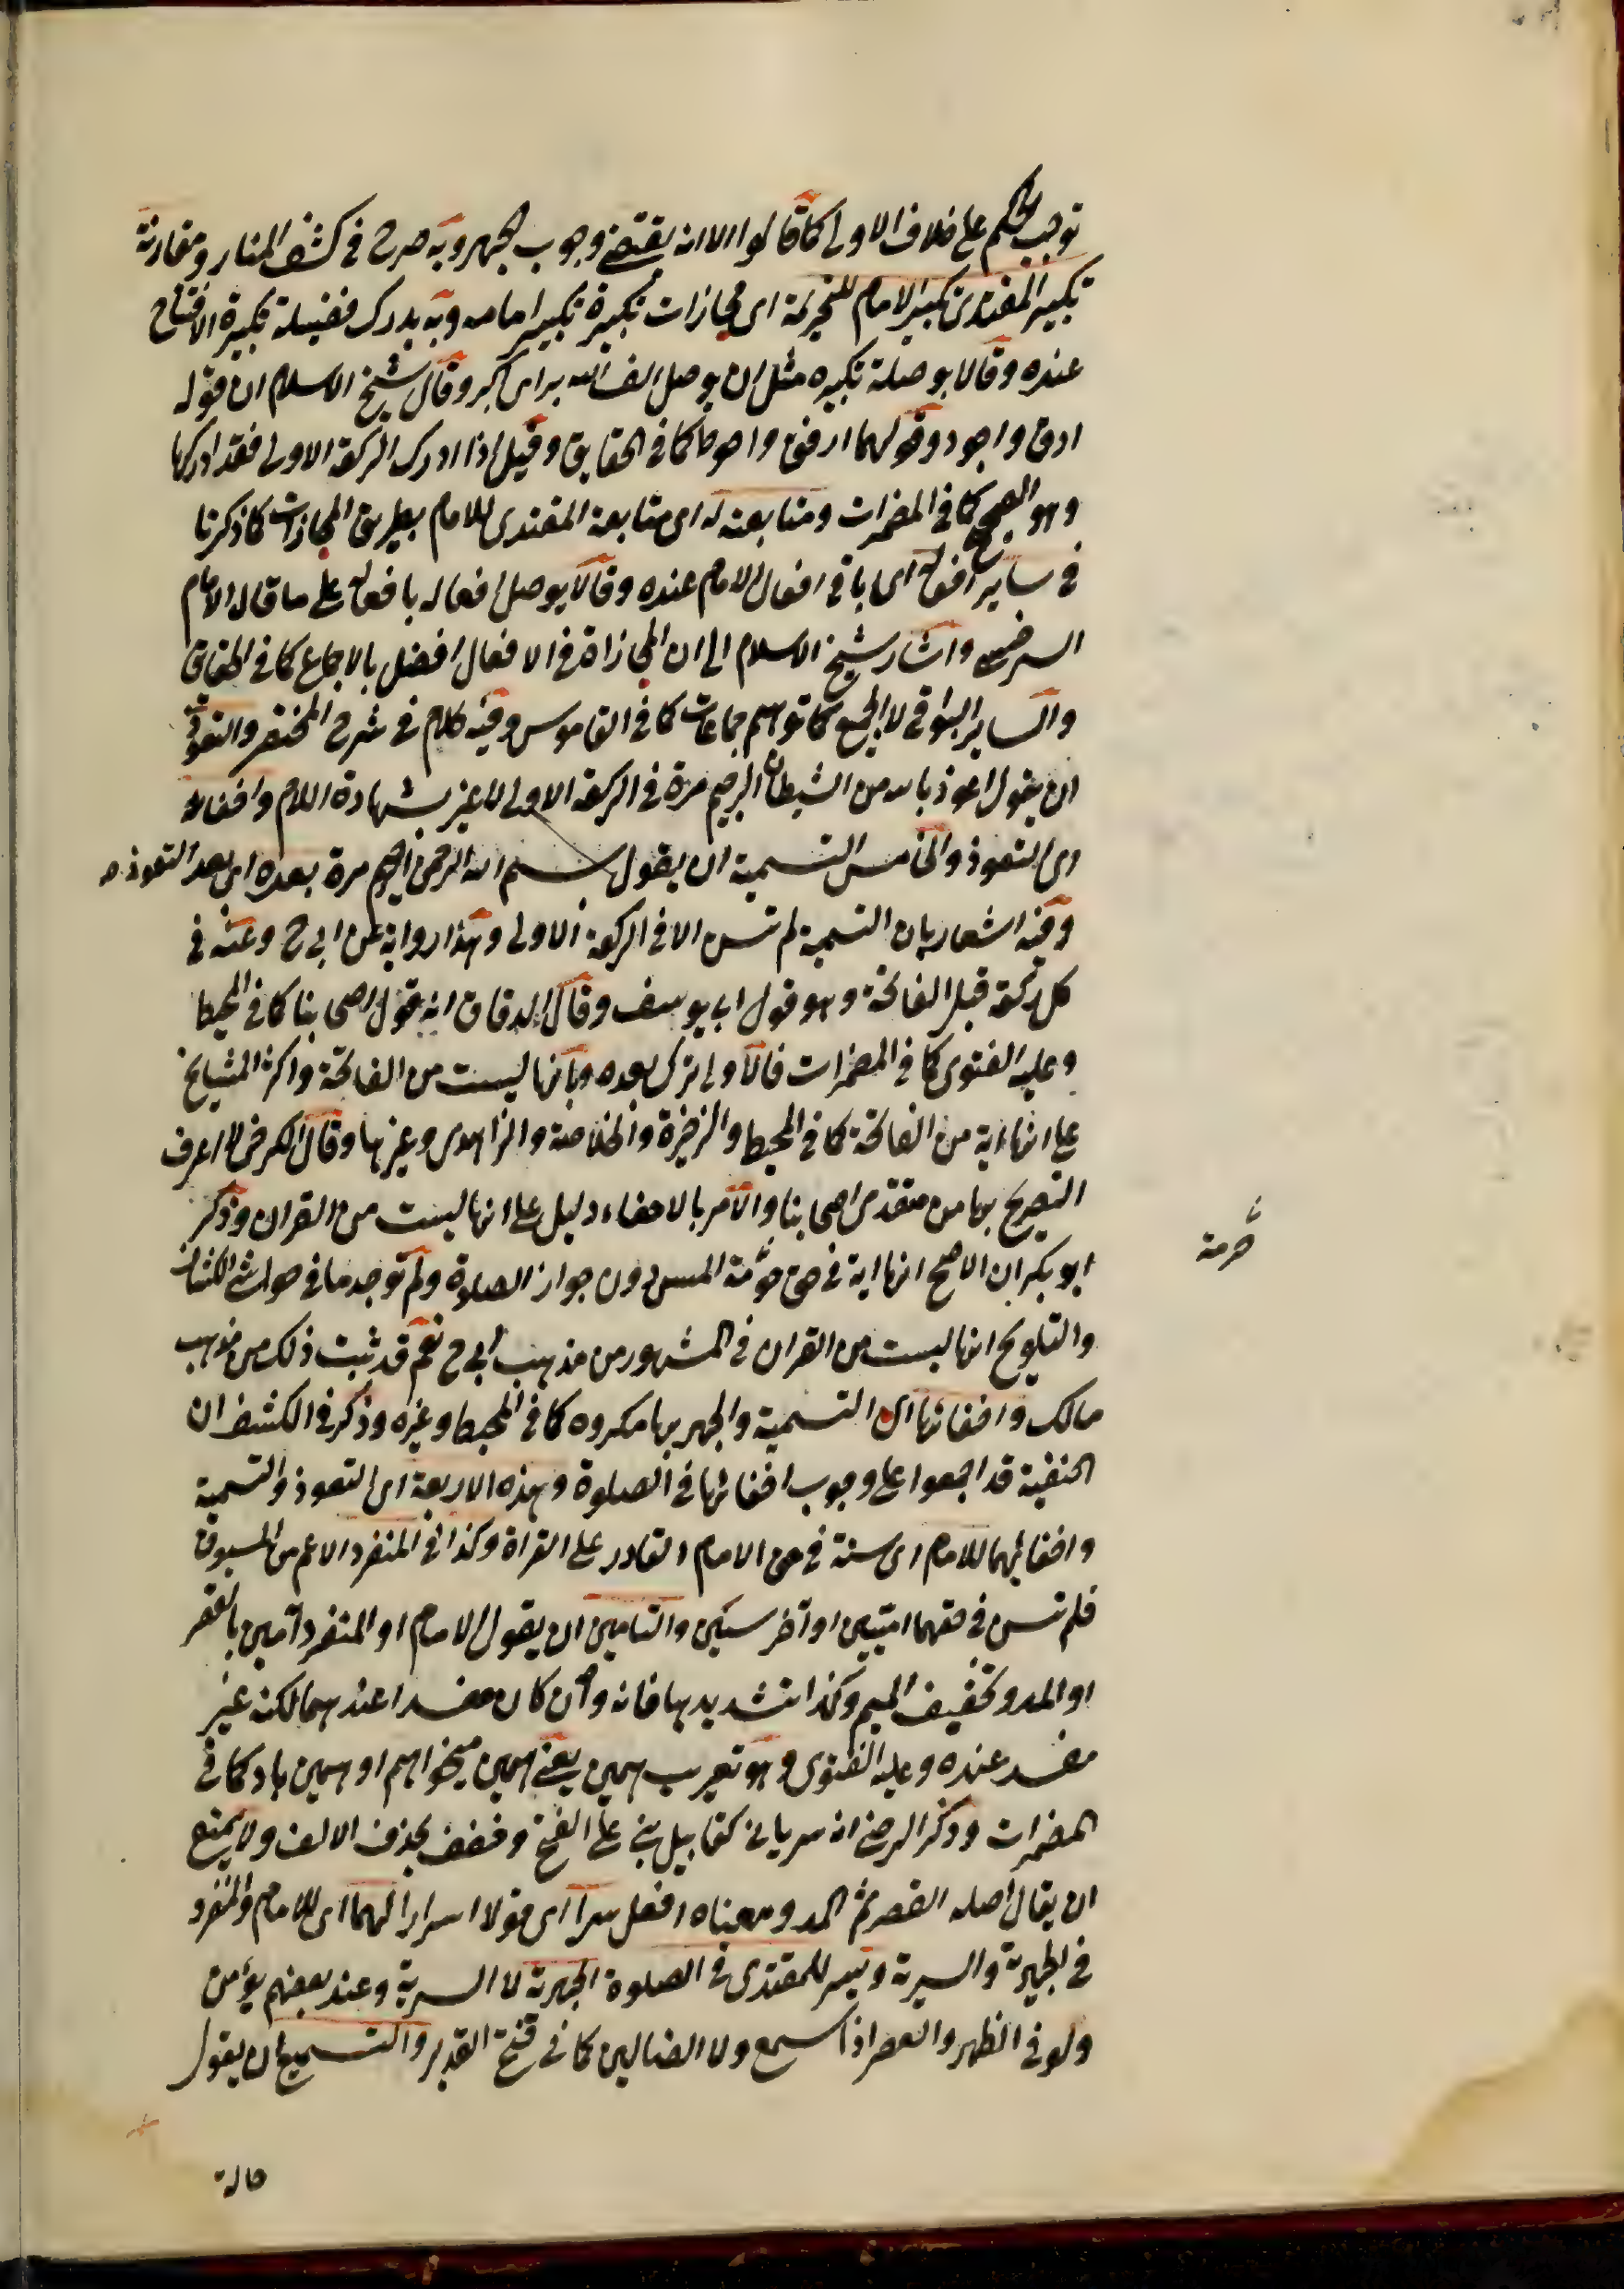 توجب الحكم على خلاف الاولى كما قالوا الا انه يقتضى وجوب الجهر وبه صرح فى كشف المنار ومقارنة
تكبير المقتدى تكبير الامام للتحريمة اى محازات تكبيرة تكبير امامه وبه يدرك فضيلة تكبيرة الافتتاح
عنده وقالا بوصلة تكبيره مثل ان يوصل الف الله براى اكبر وقال شيخ الاسلام ان قوله
ادق واجود وقولهما ارفق واحوط كما فى الحقايق وقيل اذا ادرك الركعة الاولى فقد ادركها
وهو الصحيح كما فى المضمرات ومتابعته له اى متابعة المقتدى للامام بطريق المحازات كما ذكرنا
فى ساير افعاله اى باقى افعال الامام عنده وقالا يوصل افعاله بافعاله على ما قال الامام
السرخسى واشار شيخ الاسلام الى ان المحازاة فى الافعال افضل بالاجماع كما فى الحقايق
والساير البواقى لا الجميع كما توهم جماعات كما فى القاموس وفيه كلام فى شرح المختصر والتعوذ
ان يقول اعوذ بالله من الشيطان الرجيم مرة فى الركعة الاولى لا غير بشهادة اللام واخفائه
اى التعوذ والخامس التسمية ان يقول بسم الله الرحمن الرحيم مرة بعده اى بعد التعوذ
وفيه اشعار بان التسمية لم تسن الا فى الركعة الاولى وهذا رواية عن ابى ح وعنه فى
كل ركعة قبل الفاتحة وهو قول ابى يوسف وقال الدقاق انه قول اصحابنا كما فى المحيط
وعليه الفتوى كما فى المضمرات فالاولى ترك بعده وبانها ليست من الفاتحة واكثر المشايخ
على انها اية من الفاتحة كما فى المحيط والذخيرة والخلاصة والزاهدى وغيرها وقال الكرخى لا اعرف
التصريح بها من متقدمى اصحابنا والامر بالاخفاء دليل على انها ليست من القران وذكر
ابو بكر ان الاصح انها اية فى حق حرمة المس دون جواز الصلوة ولم توجد ما فى حواشى الكشاف
والتلويح انها ليست من القران فى المشهور من مذهب ابى ح نعم قد ثبت ذلك من مذهب
مالك واخفائها اى التسمية والجهر بها مكروه كما فى المحيط وغيره وذكر فى الكشف ان
الحنفية قد اجمعوا على وجوب اخفائها فى الصلوة وهذه الاربعة اى التعوذ والتسمية
واخفائهما للامام اى سنة فى حق الامام القادر على القراة وكذا فى المنفرد الاعم من المسبوق
فلم تسن فى حقهما اميين او اخرسين والتامين ان يقول الامام او المنفرد آمين بالقصر
او المد وتخفيف الميم وكذا تشديدها فانه وان كان مفسدا عندهما لكنه غير
مفسد عنده وعليه الفتوى وهو تعريب همين يعنى همين ميخواهم او همين باد كما فى
المضمرات وذكر الرضى انه سريانى كقابيل بنى على الفتح وخفف بحذف الالف ولا يمتنع
ان يقال اصله القصر ثم المد ومعناه افعل سرا اى قولا اسرارا لهما اى للامام والمنفرد
فى الجهرية والسرية ويسر للمقتدى فى الصلوة الجهرية لا السرية وعند بعضهم يؤمن
ولو فى الظهر والعصر اذا سمع ولا الضالين كما فى فتح القدير والتسميع ان يقول
حرمة
حالة